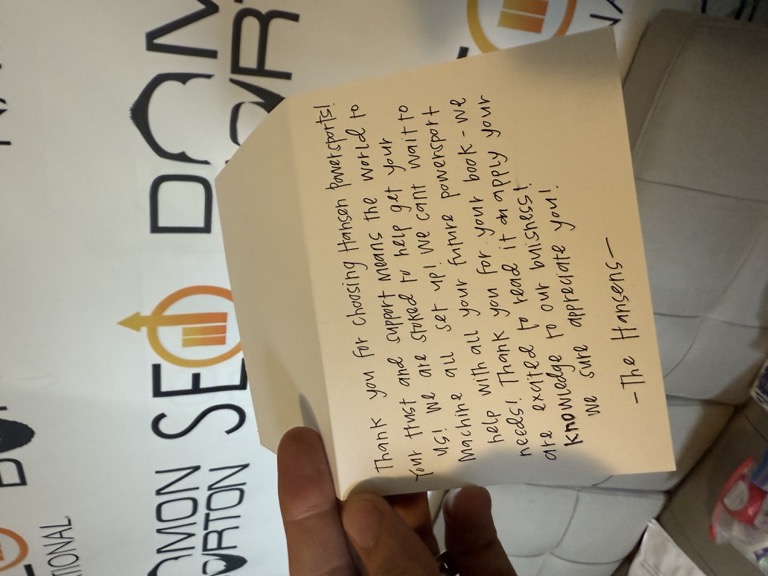 Thank you for choosing Hansen Powersports!
Your trust and support means the world to
us! We are stoked to help get your
Machine all set up! We cant wait to
help with all your future powersport
needs! Thank you for your book - we
are excited to read it & apply your
knowledge to our buisness!
We sure appreciate you!
-The Hansens-
SEO
MON
URTON
DAM
TIONAL